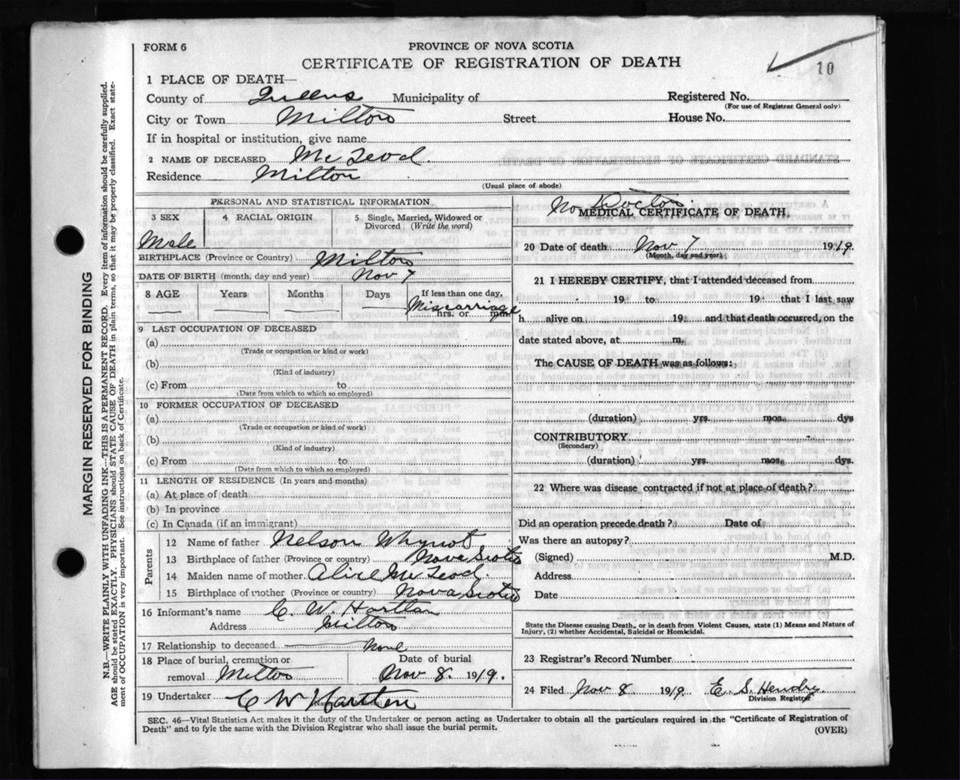 FORM 6
PROVINCE OF NOVA SCOTIA
CERTIFICATE OF REGISTRATION OF DEATH
10
1 PLACE OF DEATH—
County of Queens Municipality of Registered No.
(For use of Registrar General only)
City or Town Milton Street House No.
If in hospital or institution, give name
2 NAME OF DECEASED McLeod.
Residence Milton
(Usual place of abode)
MARGIN RESERVED FOR BINDING
N.B.—WRITE PLAINLY WITH UNFADING INK—THIS IS A PERMANENT RECORD. Every item of information should be carefully supplied.
AGE should be stated EXACTLY. PHYSICIANS should STATE CAUSE OF DEATH in plain terms, so that it may be properly classified. Exact state-
ment of OCCUPATION is very important. See instructions on back of Certificate.
PERSONAL AND STATISTICAL INFORMATION
3 SEX 4 RACIAL ORIGIN 5 Single, Married, Widowed or Divorced (Write the word)
Male
BIRTHPLACE (Province or Country) Milton
DATE OF BIRTH (month, day and year) Nov 7
8 AGE Years Months Days If less than one day,
Miscarriage
hrs. or min.
9 LAST OCCUPATION OF DECEASED
(a)
(Trade or occupation or kind or work)
(b)
(Kind of industry)
(c) From to
(Date from which to which so employed)
10 FORMER OCCUPATION OF DECEASED
(a)
(Trade or occupation or kind of work)
(b)
(Kind of industry)
(c) From to
(Date from which to which so employed)
11 LENGTH OF RESIDENCE (In years and months)
(a) At place of death
(b) In province
(c) In Canada (if an immigrant)
Parents
12 Name of father Nelson Whynot
13 Birthplace of father (Province or country) Nova Scotia
14 Maiden name of mother Alice McLeod
15 Birthplace of mother (Province or country) Nova Scotia
16 Informant's name C. W. Hartlen
Address Milton
17 Relationship to deceased none
18 Place of burial, cremation or removal Milton Date of burial Nov 8. 1919.
19 Undertaker C W Hartlen
No Doctor
MEDICAL CERTIFICATE OF DEATH
20 Date of death Nov 7 1919
(Month, day and year)
21 I HEREBY CERTIFY, that I attended deceased from
19 to 19 that I last saw
h alive on 19 and that death occurred, on the
date stated above, at m.
The CAUSE OF DEATH was as follows:
(duration) yrs. mos. dys
CONTRIBUTORY
(Secondary)
(duration) yrs. mos. dys.
22 Where was disease contracted if not at place of death?
Did an operation precede death? Date of
Was there an autopsy?
(Signed) M.D.
Address
Date
State the Disease causing Death, or in death from Violent Causes, state (1) Means and Nature of
Injury, (2) whether Accidental, Suicidal or Homicidal.
23 Registrar's Record Number
24 Filed Nov 8 1919 E. S. Hendry
Division Registrar
SEC. 46—Vital Statistics Act makes it the duty of the Undertaker or person acting as Undertaker to obtain all the particulars required in the "Certificate of Registration of
Death" and to fyle the same with the Division Registrar who shall issue the burial permit. (OVER)